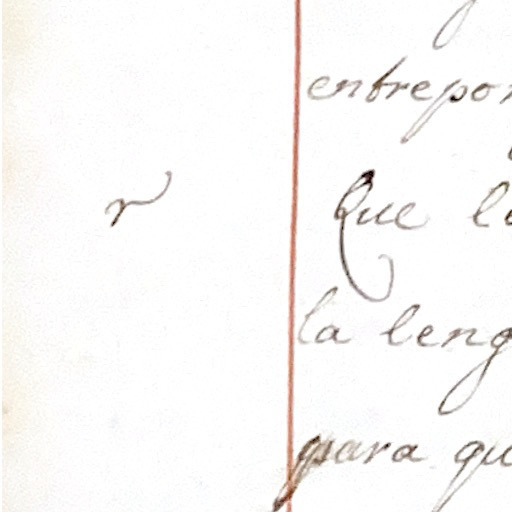 entrepon
r
Que l
la leng
para qu